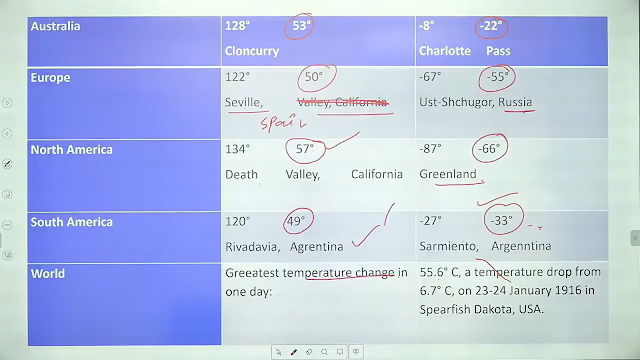 Australia 128° 53° -8° -22°
Cloncurry Charlotte Pass
Europe 122° 50° -67° -55°
Seville, Valley, California Ust-Shchugor, Russia
Spain
North America 134° 57° -87° -66°
Death Valley, California Greenland
South America 120° 49° -27° -33°
Rivadavia, Agrentina Sarmiento, Argenntina
World Greeatest temperature change in 55.6° C, a temperature drop from
one day: 6.7° C, on 23-24 January 1916 in
Spearfish Dakota, USA.